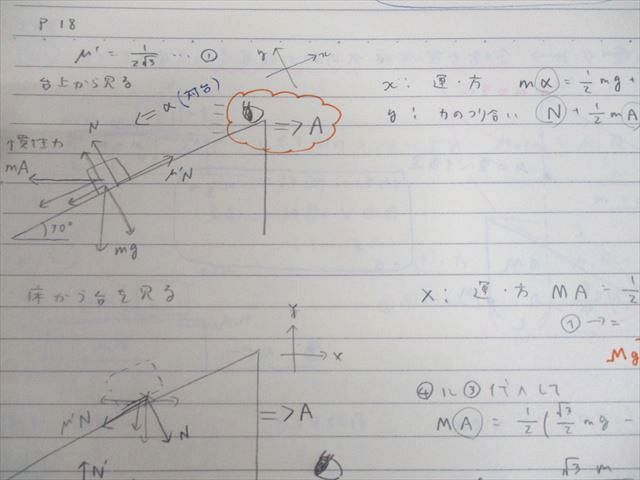 P 18
μ' = 1/2√3 … ①
y
x
台上から見る
α (対台)
=> A
x: 運・方 mα = 1/2 mg +
y: 力のつり合い N + 1/2 mA
N
慣性力
mA
μ'N
30°
mg
床から台を見る
y
x
X: 運・方 MA = 1/2
① → =
Mg
④に③代入して
MA = 1/2 (√3/2 mg -
μ'N
N
=> A
N'
√3 m